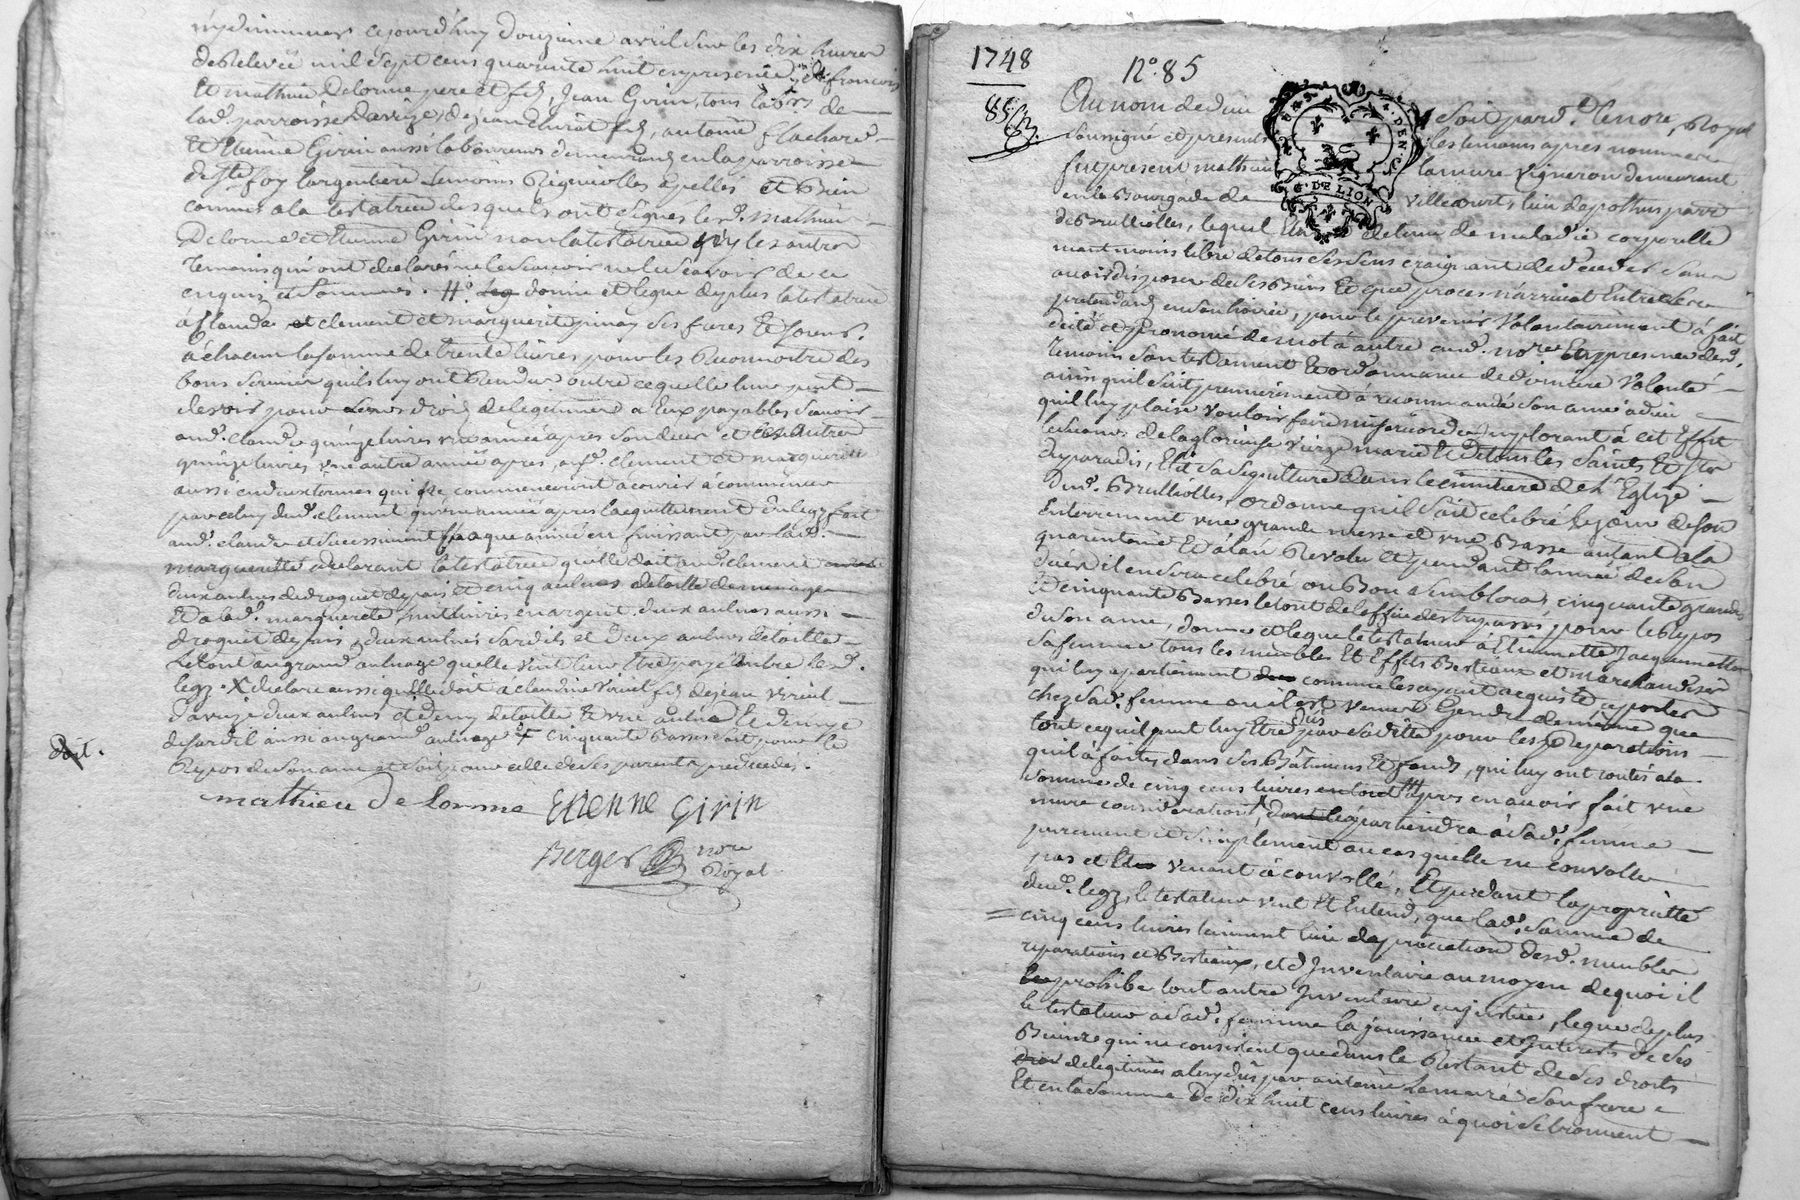 cejourd'huy douzieme avril sur les dix heures
de Relevée mil sept cens quarante huit en presence de françois
Et mathieu Delorme pere et fils, Jean Girin, tous labrs de
lad. parroisse Daveize, de jean fils, antoine flachard
Et Etienne Girin aussi laboureurs demeurants en la parroisse
de Ste foy l'argentiere temoins Requis et appellés et Bien
connus a la testatrice lesquels ont signés led. mathieu
Delorme et Etienne Girin non la testatrice ny les autres
Temoins qui ont declarés ne le scavoir ne leu scavoir de ce
enquis et sommés. donne et legue de plus la testatrice
à Claude et clement et marguerite pinay ses freres Et soeurs.
à chacun la somme de trente livres pour les Reconnoitre des
bons services qu'ils luy ont Rendus outre ce quelle leur peut
devoir pour droits de legitimes a Eux payables scavoir
aud. claude quinze livres une année apres son deces et les autres
quinze livres une autre année apres, auxd. clement et marguerite
aussi en deux termes qui commenceront a courir à commencer
par celuy dud. clement une année apres l'acquittement du legz fait
aud. claude et successivement chaque année en finissant par lad.
marguerite declarant la testatrice quelle doit aud. clement
deux aulnes de droguet de pais et cinq aulnes de toille de menage
Et a lad. marguerite huit livres en argent, deux aulnes aussi
droguet de pais, deux aulnes sardis et deux aulnes de toille
Le tout au grand aulnage quelle veut leur Etre payé outre led.
legz. X declare aussi quelle doit à claudine viricel fille de jean viricel
Daveize deux aulnes et demy de toille Et une aulne Et demye
de sardis aussi au grand aulnage + cinquante Basses soit pour le
Repos de son ame et soit pour celle de ses parents predecedés.
doit.
mathieu de lorme Etienne Girin
Berger nore
Royal
1748
No. 85
85
GEN. DE LION
Au nom de Dieu Soit pard. le nore, Royal
soussigné et presents les temoins apres nommés
fut present mathieu lamure vigneron demeurant
en la Bourgade de villecourt, lieu de pothus parr
de Brulliolles, lequel detenu de maladie corporelle
neant moins libre de tous ses sens craignant de deceder sans
avoir disposer de ses Biens Et que proces narrivat Entre ses
pretendans en son hoirie, pour le prevenir volontairement à fait
dicté et prononcé de mot à autre aud. nore. En presence desd.
temoins son testament Et ordonnance de derniere volonté
ainsi qu'il suit premierement à recommandé son ame à dieu
qu'il luy plaise vouloir faire misericorde implorant à cet Effet
le secours de la glorieuse vierge marie Et de tous les saints Et stes
du paradis, Elit sa sepulture dans le cimetiere de l'Eglize
dud. Brulliolles, ordonne qu'il soit celebré le jour de son
Enterrement une grande messe et une Basse autant a la
quarantaine Et à l'an Revolu et pendant l'année de son
deces il en sera celebré ou Bon semblera, cinquante grandes
Et cinquante Basses le tout de l'office des trepassés, pour le Repos
de son ame, donne et legue le testateur à Etiennette Jacquemetton
sa femme tous les meubles Et Effets Bestiaux et marchandises
qui luy apartiennent comme les ayant acquis Et apportés
chez sad. femme ou il est venu Gendre de meme que
tout ce qu'il peut luy Etre dus par sadite pour les Reparations
qu'il à faites dans ses Batiments Et fonds, qui luy ont coutés a la
somme de cinq cens livres apres en avoir fait une
mure consideration, dont le apartiendra à sad. femme
purement et simplement au cas quelle ne convolle
pas et venant à convoller, Et perdant la proprieté
dud. legz, le testateur veut Et Entend, que lad. somme de
cinq cens livres tiennent lieu d'apreciation desd. meubles
reparations et Bestiaux, et d'Inventaire au moyen de quoi il
prohibe tout autre Inventaire en justice, legue de plus
le testateur a sad. femme la jouissance et Interets de ses
Biens qui ne consistent que dans le Restant de ses droits
de legitimes a luy dus par antoine Lamure son frere
Et en la somme De dix huit cens livres à quoi se trouvent